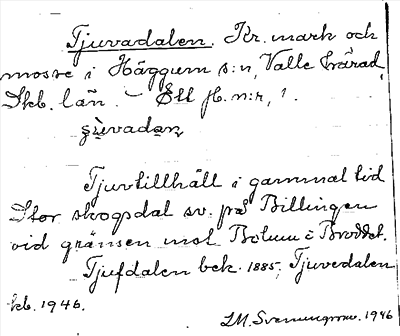 Tjuvadalen. Kr. mark och
mosse i Häggum s:n, Valle härad,
Skb. län. — Ett fb. n:r, 1.
ʂùvadan
Tjuvtillhåll i gammal tid
Stor skogsdal sv. på Billingen
vid gränsen mot Bolum i Broddet.
Tjufdalen bek. 1885, Tjuvedalen
kb. 1946.
LM. Svenungsson. 1946